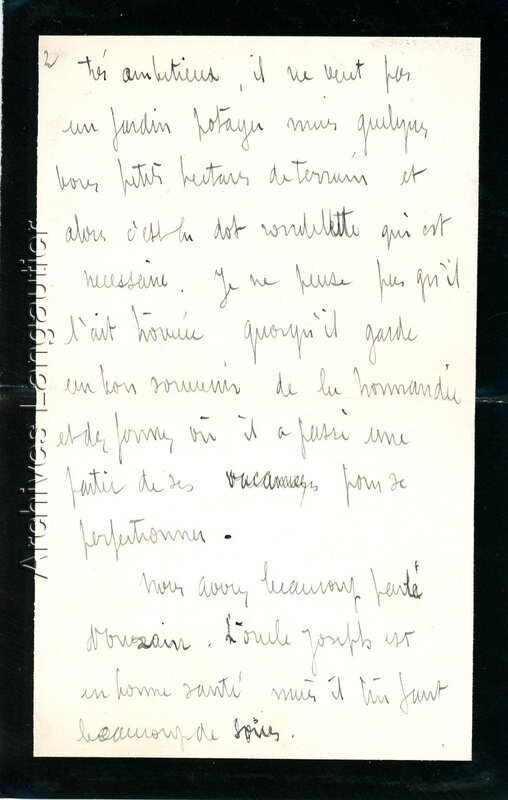 2
très ambitieux, il ne veut pas
un jardin potager mais quelques
bons petits hectares de terrain et
alors c'est la dot rondelette qui est
necessaire. Je ne pense pas qu'il
l'ait trouvée quoiqu'il garde
un bon souvenir de la Normandie
et des fermes où il a passé une
partie de ses vacances pour se
perfectionner.
Nous avons beaucoup parlé
d'Ouzain. L'oncle Joseph est
en bonne santé mais il lui faut
beaucoup de soins.
Archives Langautier